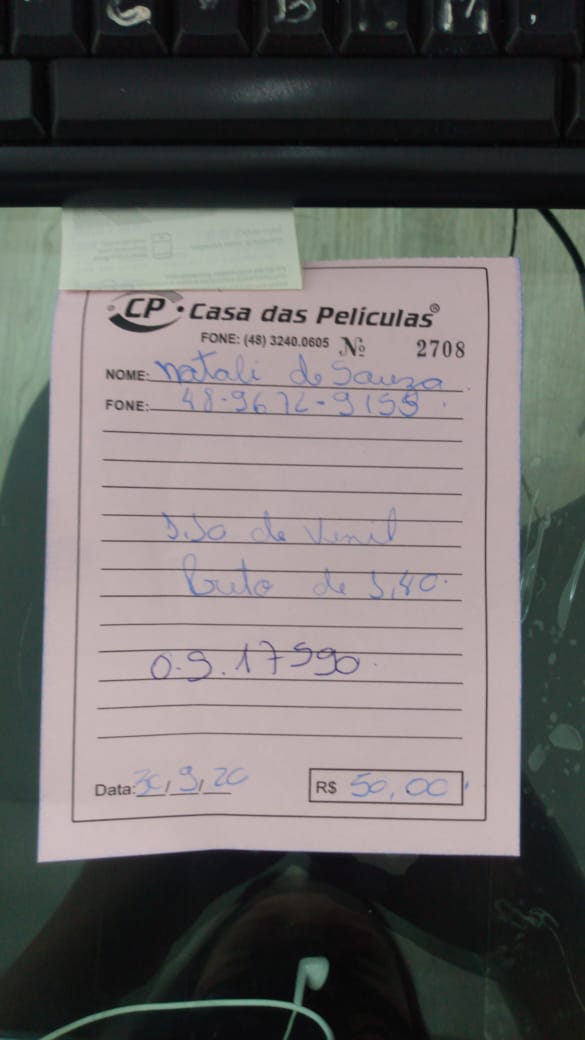 CP • Casa das Películas®
FONE: (48) 3240.0605 Nº 2708
NOME: Natali de Souza
FONE: 48-9672-9155
de Vinil
de
O.S. 17590
Data: 30/9/20 R$ 50,00